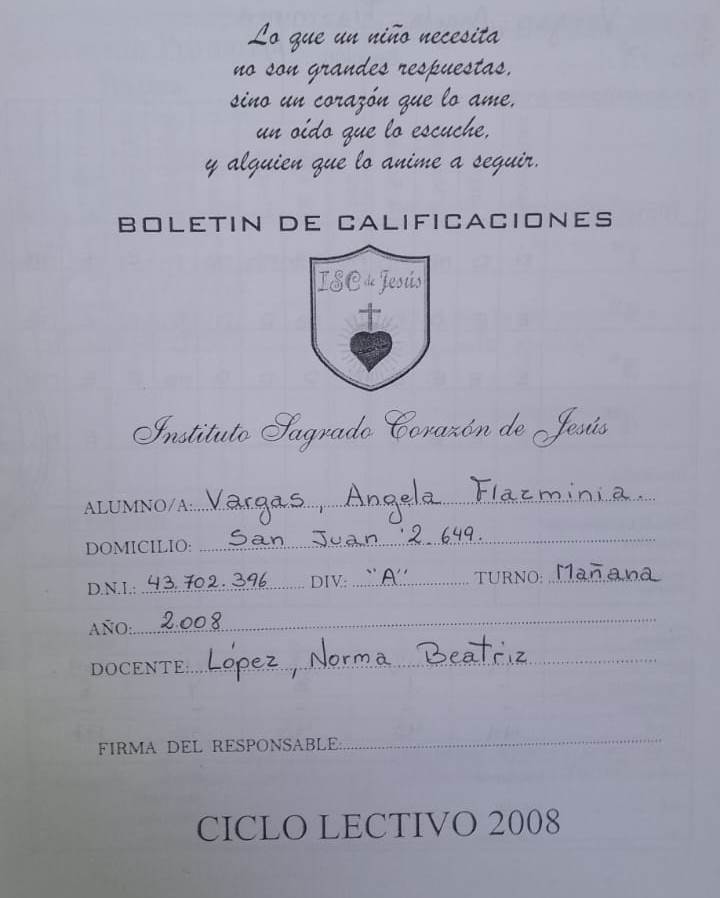 Lo que un niño necesita
no son grandes respuestas,
sino un corazón que lo ame,
un oído que lo escuche,
y alguien que lo anime a seguir.
BOLETIN DE CALIFICACIONES
ISC de Jesús
Instituto Sagrado Corazón de Jesús
ALUMNO/A: Vargas, Angela Flazminia.
DOMICILIO: San Juan 2.649.
D.N.I.: 43.702.396 DIV.: "A" TURNO: Mañana
AÑO: 2.008
DOCENTE: López, Norma Beatriz
FIRMA DEL RESPONSABLE:
CICLO LECTIVO 2008